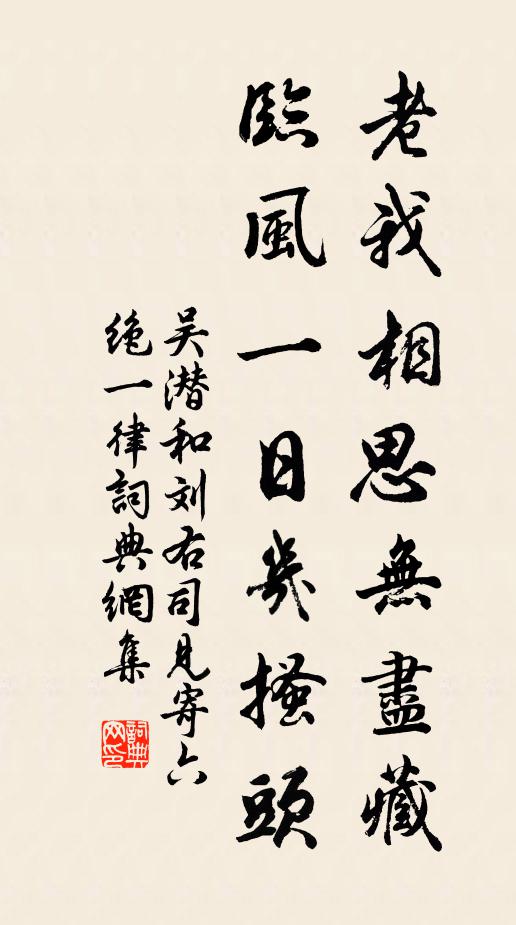 老我相思無盡藏
臨風一日幾搔頭
吴潜和刘右司見寄六
绝一律詞典網集
詞典
网印